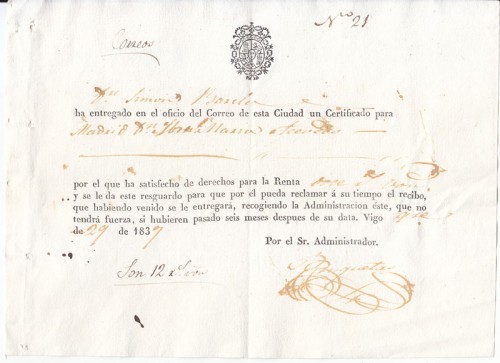 Nº 21
Correos
Dn. Simon
ha entregado en el oficio del Correo de esta Ciudad un Certificado para
Madrid Dn.
por el que ha satisfecho de derechos para la Renta
y se le da este resguardo para que por el pueda reclamar á su tiempo el recibo,
que habiendo venido se le entregará, recogiendo la Administracion éste, que no
tendrá fuerza, si hubieren pasado seis meses despues de su data. Vigo
de 29 de 1837
Por el Sr. Administrador.
Son 12